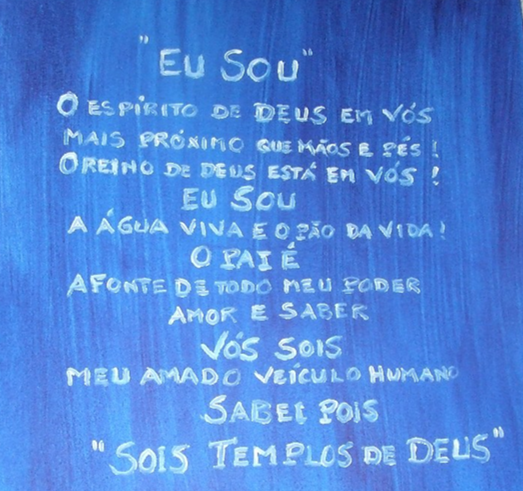 "EU SOU"
O ESPÍRITO DE DEUS EM VÓS
MAIS PRÓXIMO QUE MÃOS E PÉS!
O REINO DE DEUS ESTÁ EM VÓS!
EU SOU
A ÁGUA VIVA E O PÃO DA VIDA!
O PAI É
A FONTE DE TODO MEU PODER
AMOR E SABER
VÓS SOIS
MEU AMADO VEÍCULO HUMANO
SABEI POIS
"SOIS TEMPLOS DE DEUS"